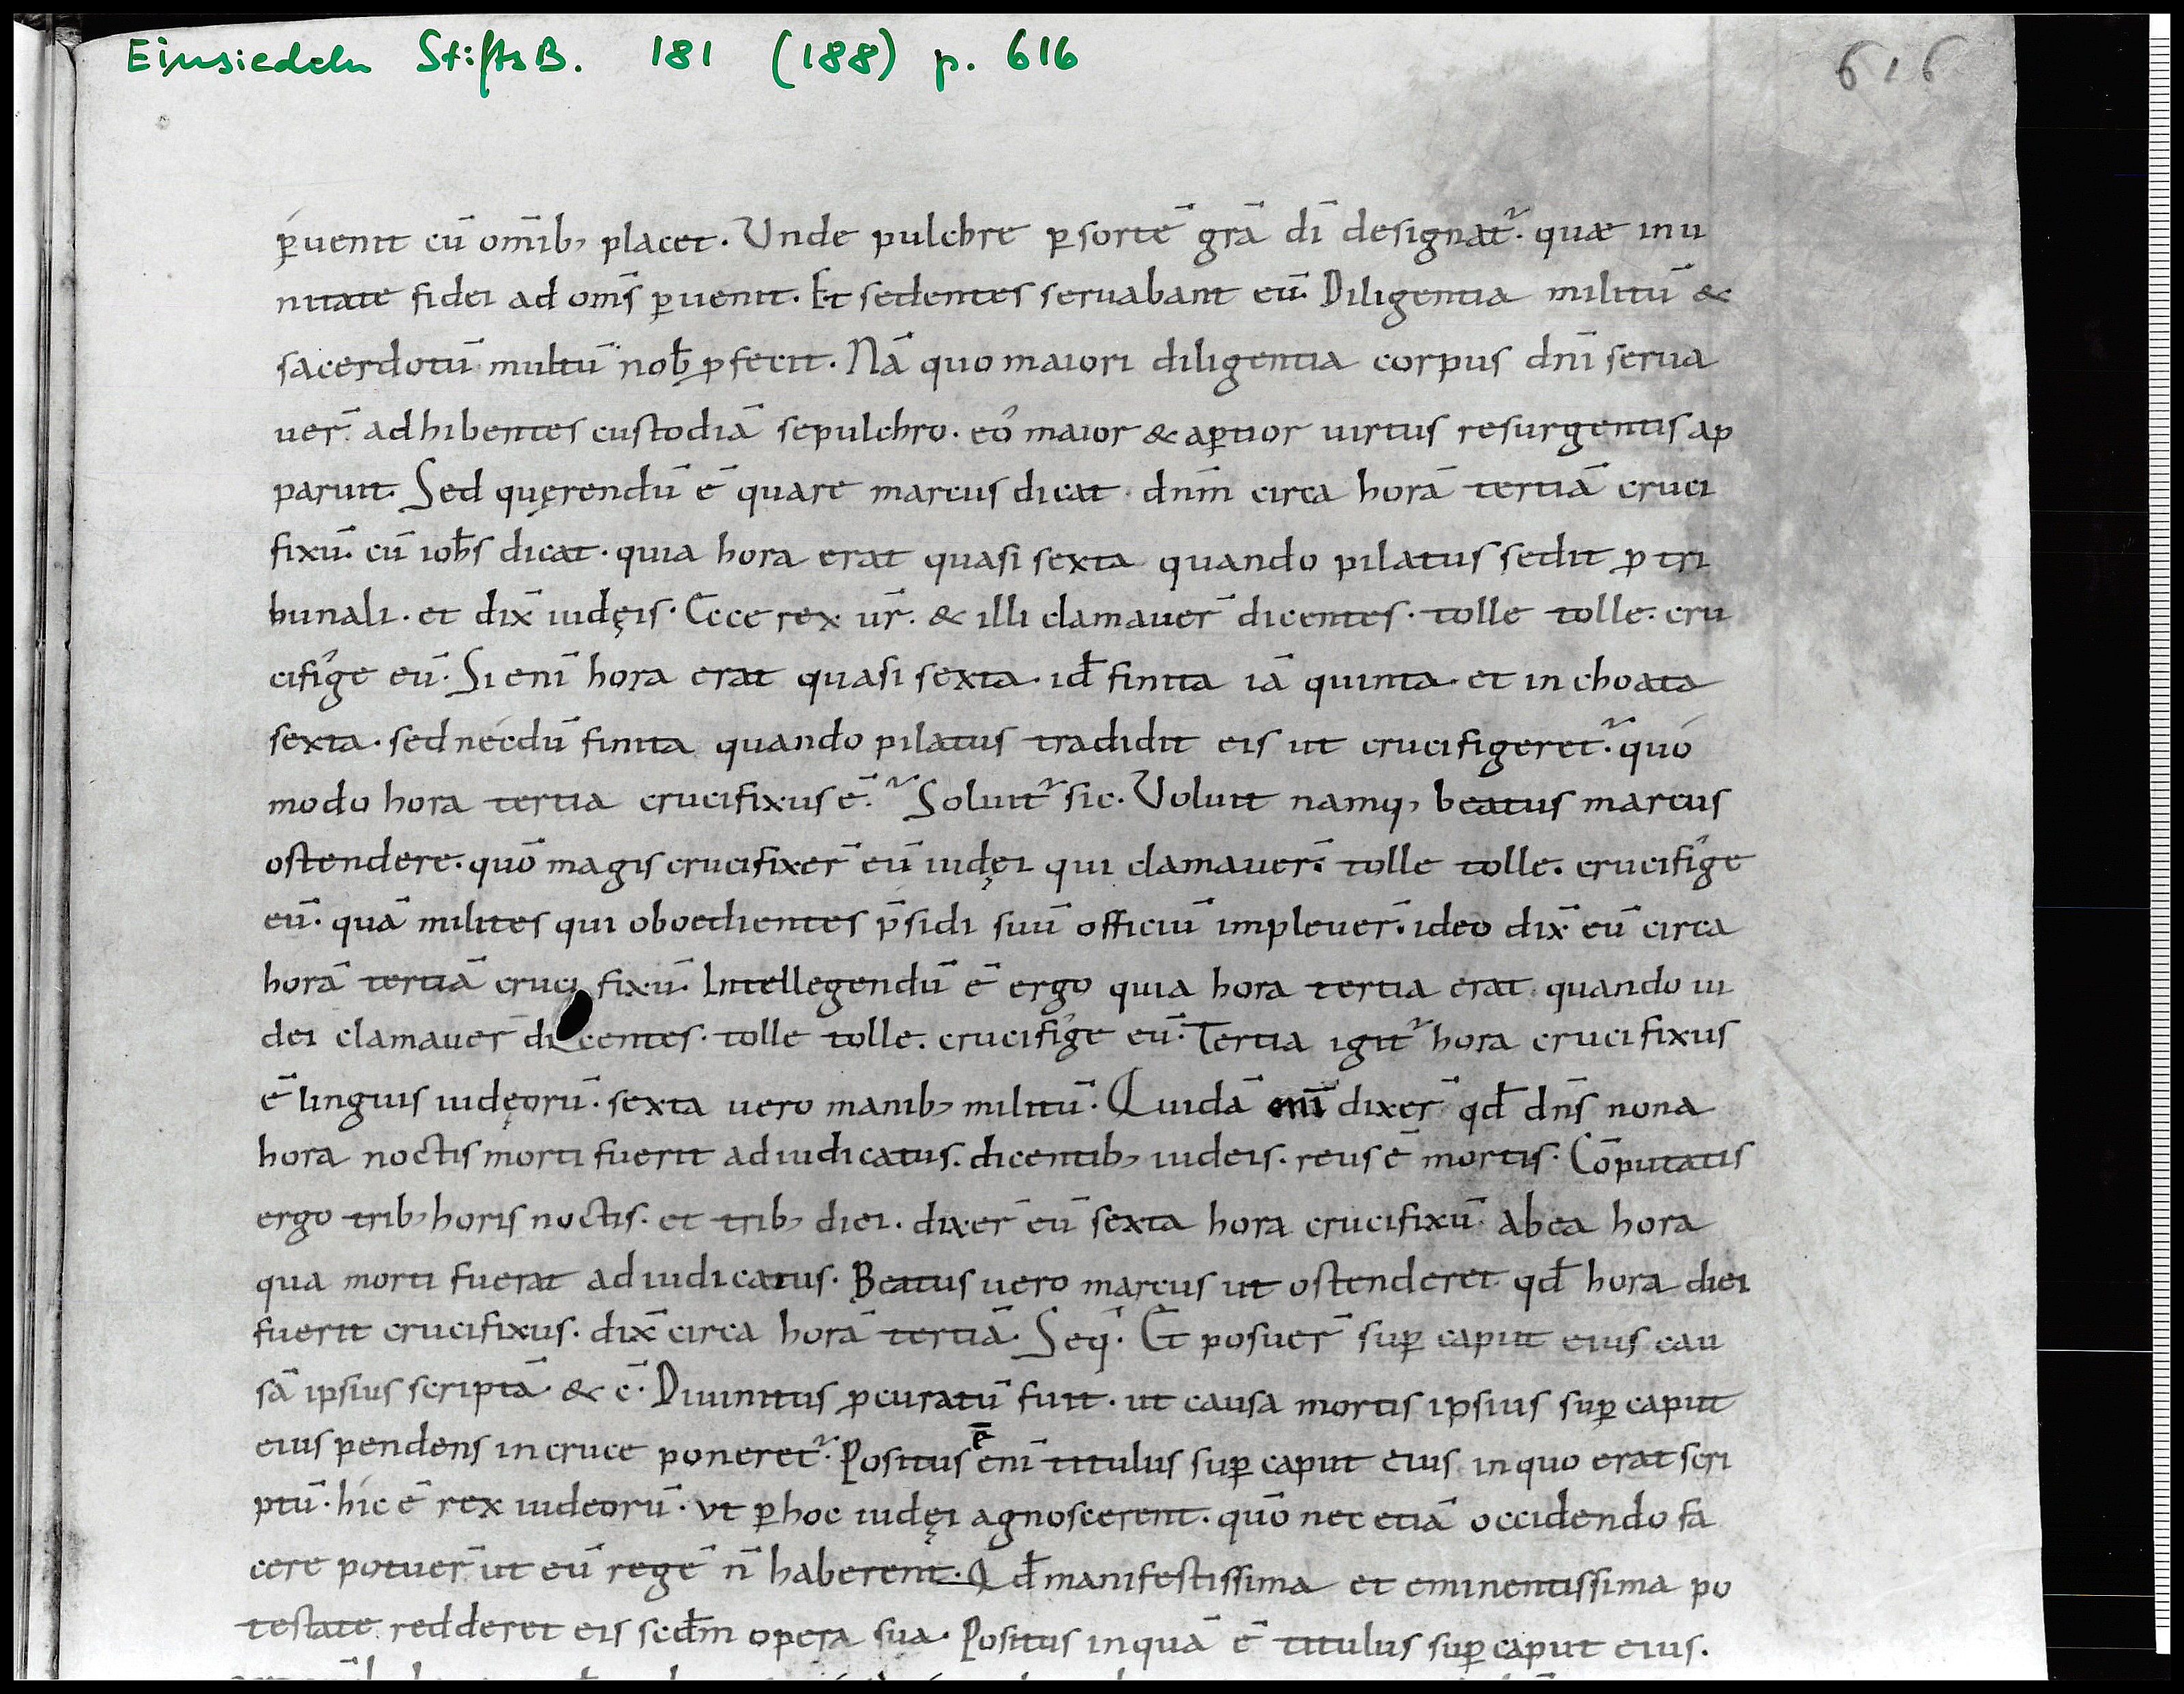 Einsiedeln StiftsB. 181 (188) p. 616
616
ꝑuenit cū om̄ib; placet. Unde pulchre ꝑsortē grā dī designat᷑. quæ inu
nitate fidei ad om̄s ꝑuenit. Et sedentes seruabant eū. Diligentia militū &
sacerdotū multū nob̄ ꝓfecit. Nā quo maiori diligentia corpus dn̄i serua
uer̄ adhibentes custodiā sepulchro. eo maior & aꝑtior uirtus resurgentis ap
paruit. Sed quęrendū ē quare marcus dicat. dn̄m circa horā tertiā cruci
fixū. cū ioh̄s dicat. quia hora erat quasi sexta quando pilatus sedit ꝓ tri
bunali. et dix̄ iudęis. Ecce rex ur̄. & illi clamauer̄ dicentes. tolle tolle. cru
cifige eū. Si enī hora erat quasi sexta. id̄ finita iā quinta. et inchoata
sexta. sed necdū finita quando pilatus tradidit eis ut crucifigeret᷑. quó
modo hora tertia crucifixus ē. Soluit᷑ sic. Uoluit namq; beatus marcus
ostendere. quō magis crucifixer̄ eū iudęi qui clamauer̄. tolle tolle. crucifige
eū. quā milites qui oboedientes p̄sidi suū officiū impleuer̄. ideo dix̄ eū circa
horā tertiā cruci fixū. Intellegendū ē ergo quia hora tertia erat quando iu
dei clamauer̄ dicentes. tolle tolle. crucifige eū. Tertia igit᷑ hora crucifixus
ē linguis iudęorū. sexta uero manib; militū. Quidā enī dixer̄ qd̄ dn̄s nona
hora noctis morti fuerit adiudicatus. dicentib; iudeis. reus ē mortis. Cōputatis
ergo trib; horis noctis. et trib; diei. dixer̄ eū sexta hora crucifixū. abea hora
qua morti fuerat adiudicatus. Beatus uero marcus ut ostenderet qd̄ hora diei
fuerit crucifixus. dix̄ circa horā tertiā. Seq̄. Et posuer̄ suꝑ caput eius cau
sā ipsius scriptā. & c̄. Diuinitus ꝓcuratū fuit. ut causa mortis ipsius suꝑ caput
eius pendens in cruce poneret᷑. Positus ē enī titulus suꝑ caput eius in quo erat scri
ptū. hic ē rex iudeorū. ut ꝑhoc iudęi agnoscerent. quō nec etiā occidendo fa
cere potuer̄ ut eū regē n̄ haberent. Qd̄ manifestissima et eminentissima po
testate redderet eis scd̄m opera sua. Positus inquā ē titulus suꝑ caput eius.